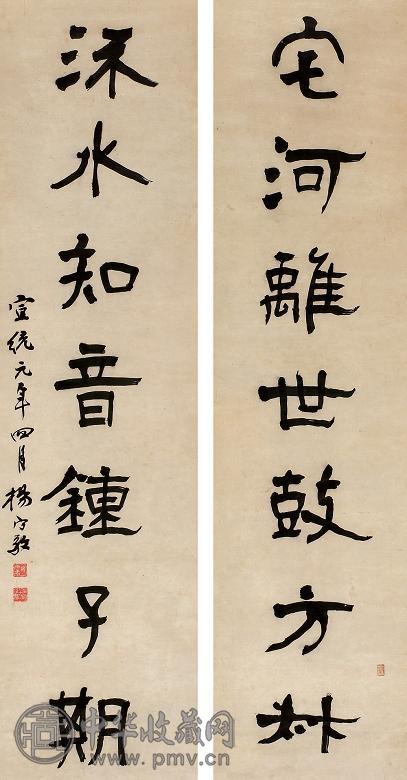 宅河離世鼓方叔
流水知音鍾子期
宣統元年四月楊守敬
中华收藏网
www.pmv.cn